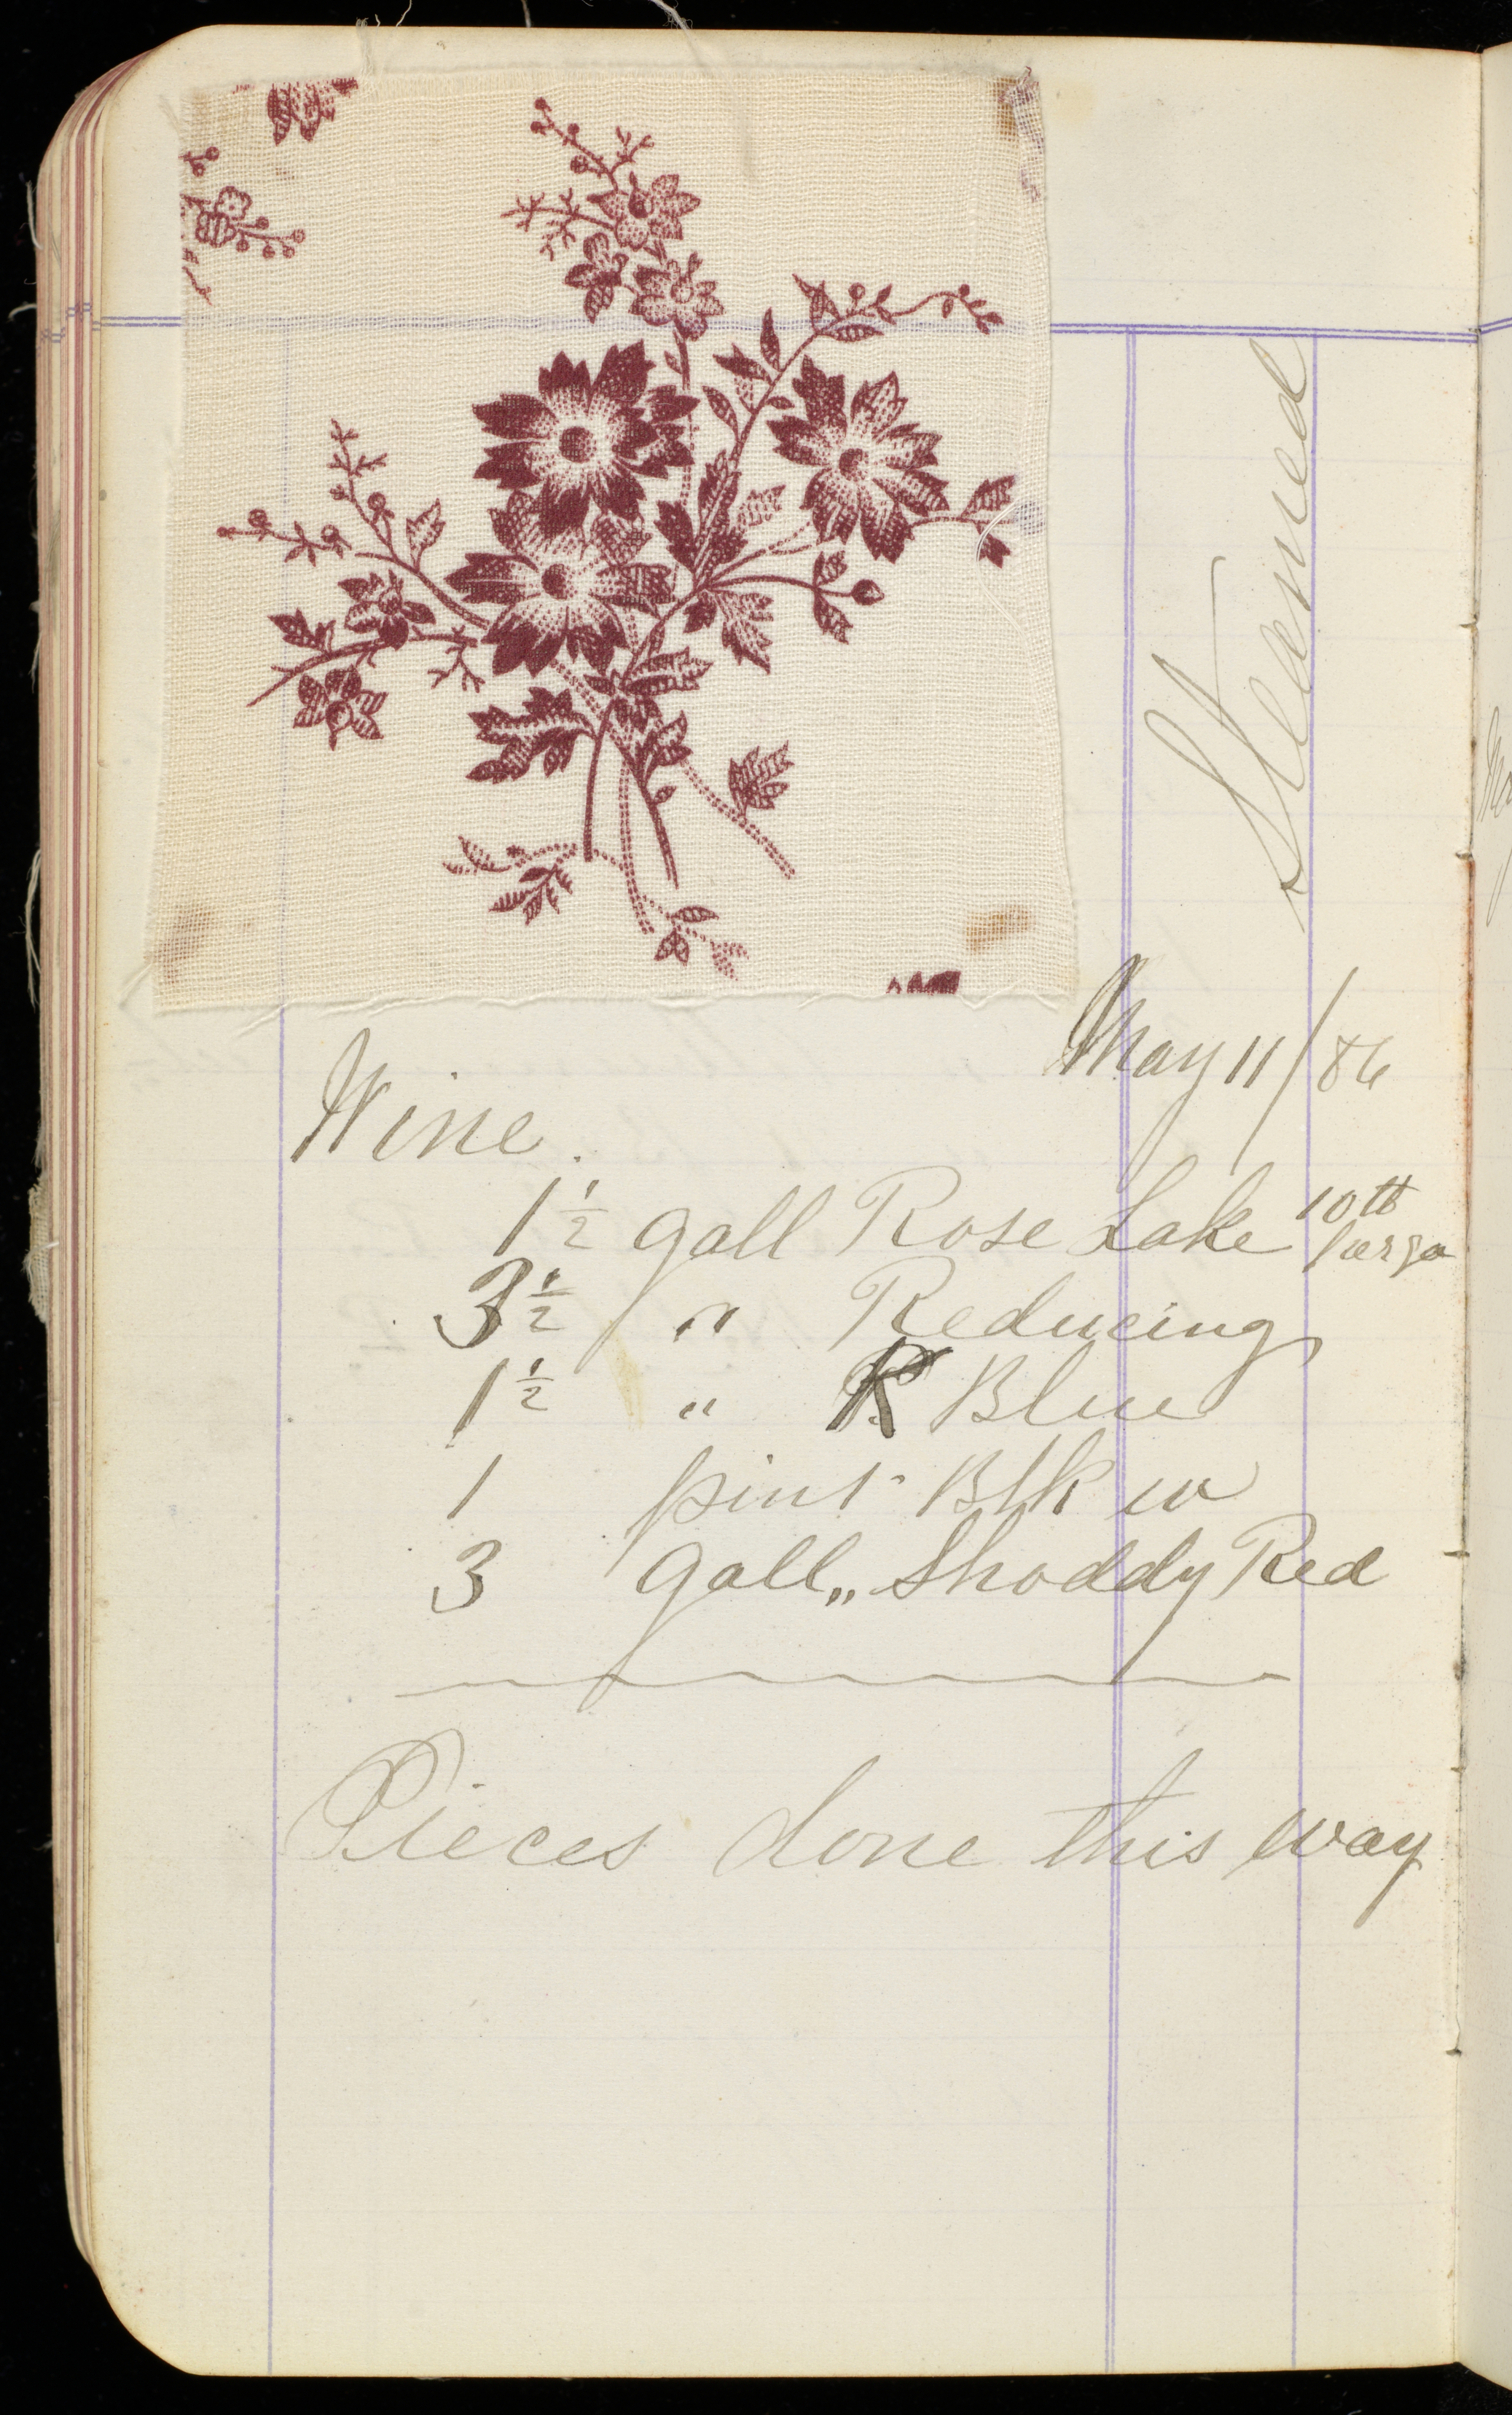 Steamed
May 11/86
Wine.
1 1/2 gall Rose Lake 10th
large
3 1/2 " Reducing
1 1/2 " R Blue
1 pint Blk w
3 gall,, Shoddy Red
Pieces done this way